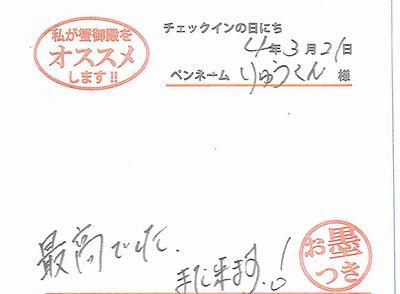 私が蟹御殿を
オススメ
します!!
チェックインの日にち
4年3月21日
ペンネーム りゅうくん 様
最高でした。
また来ます。!
お墨
つき